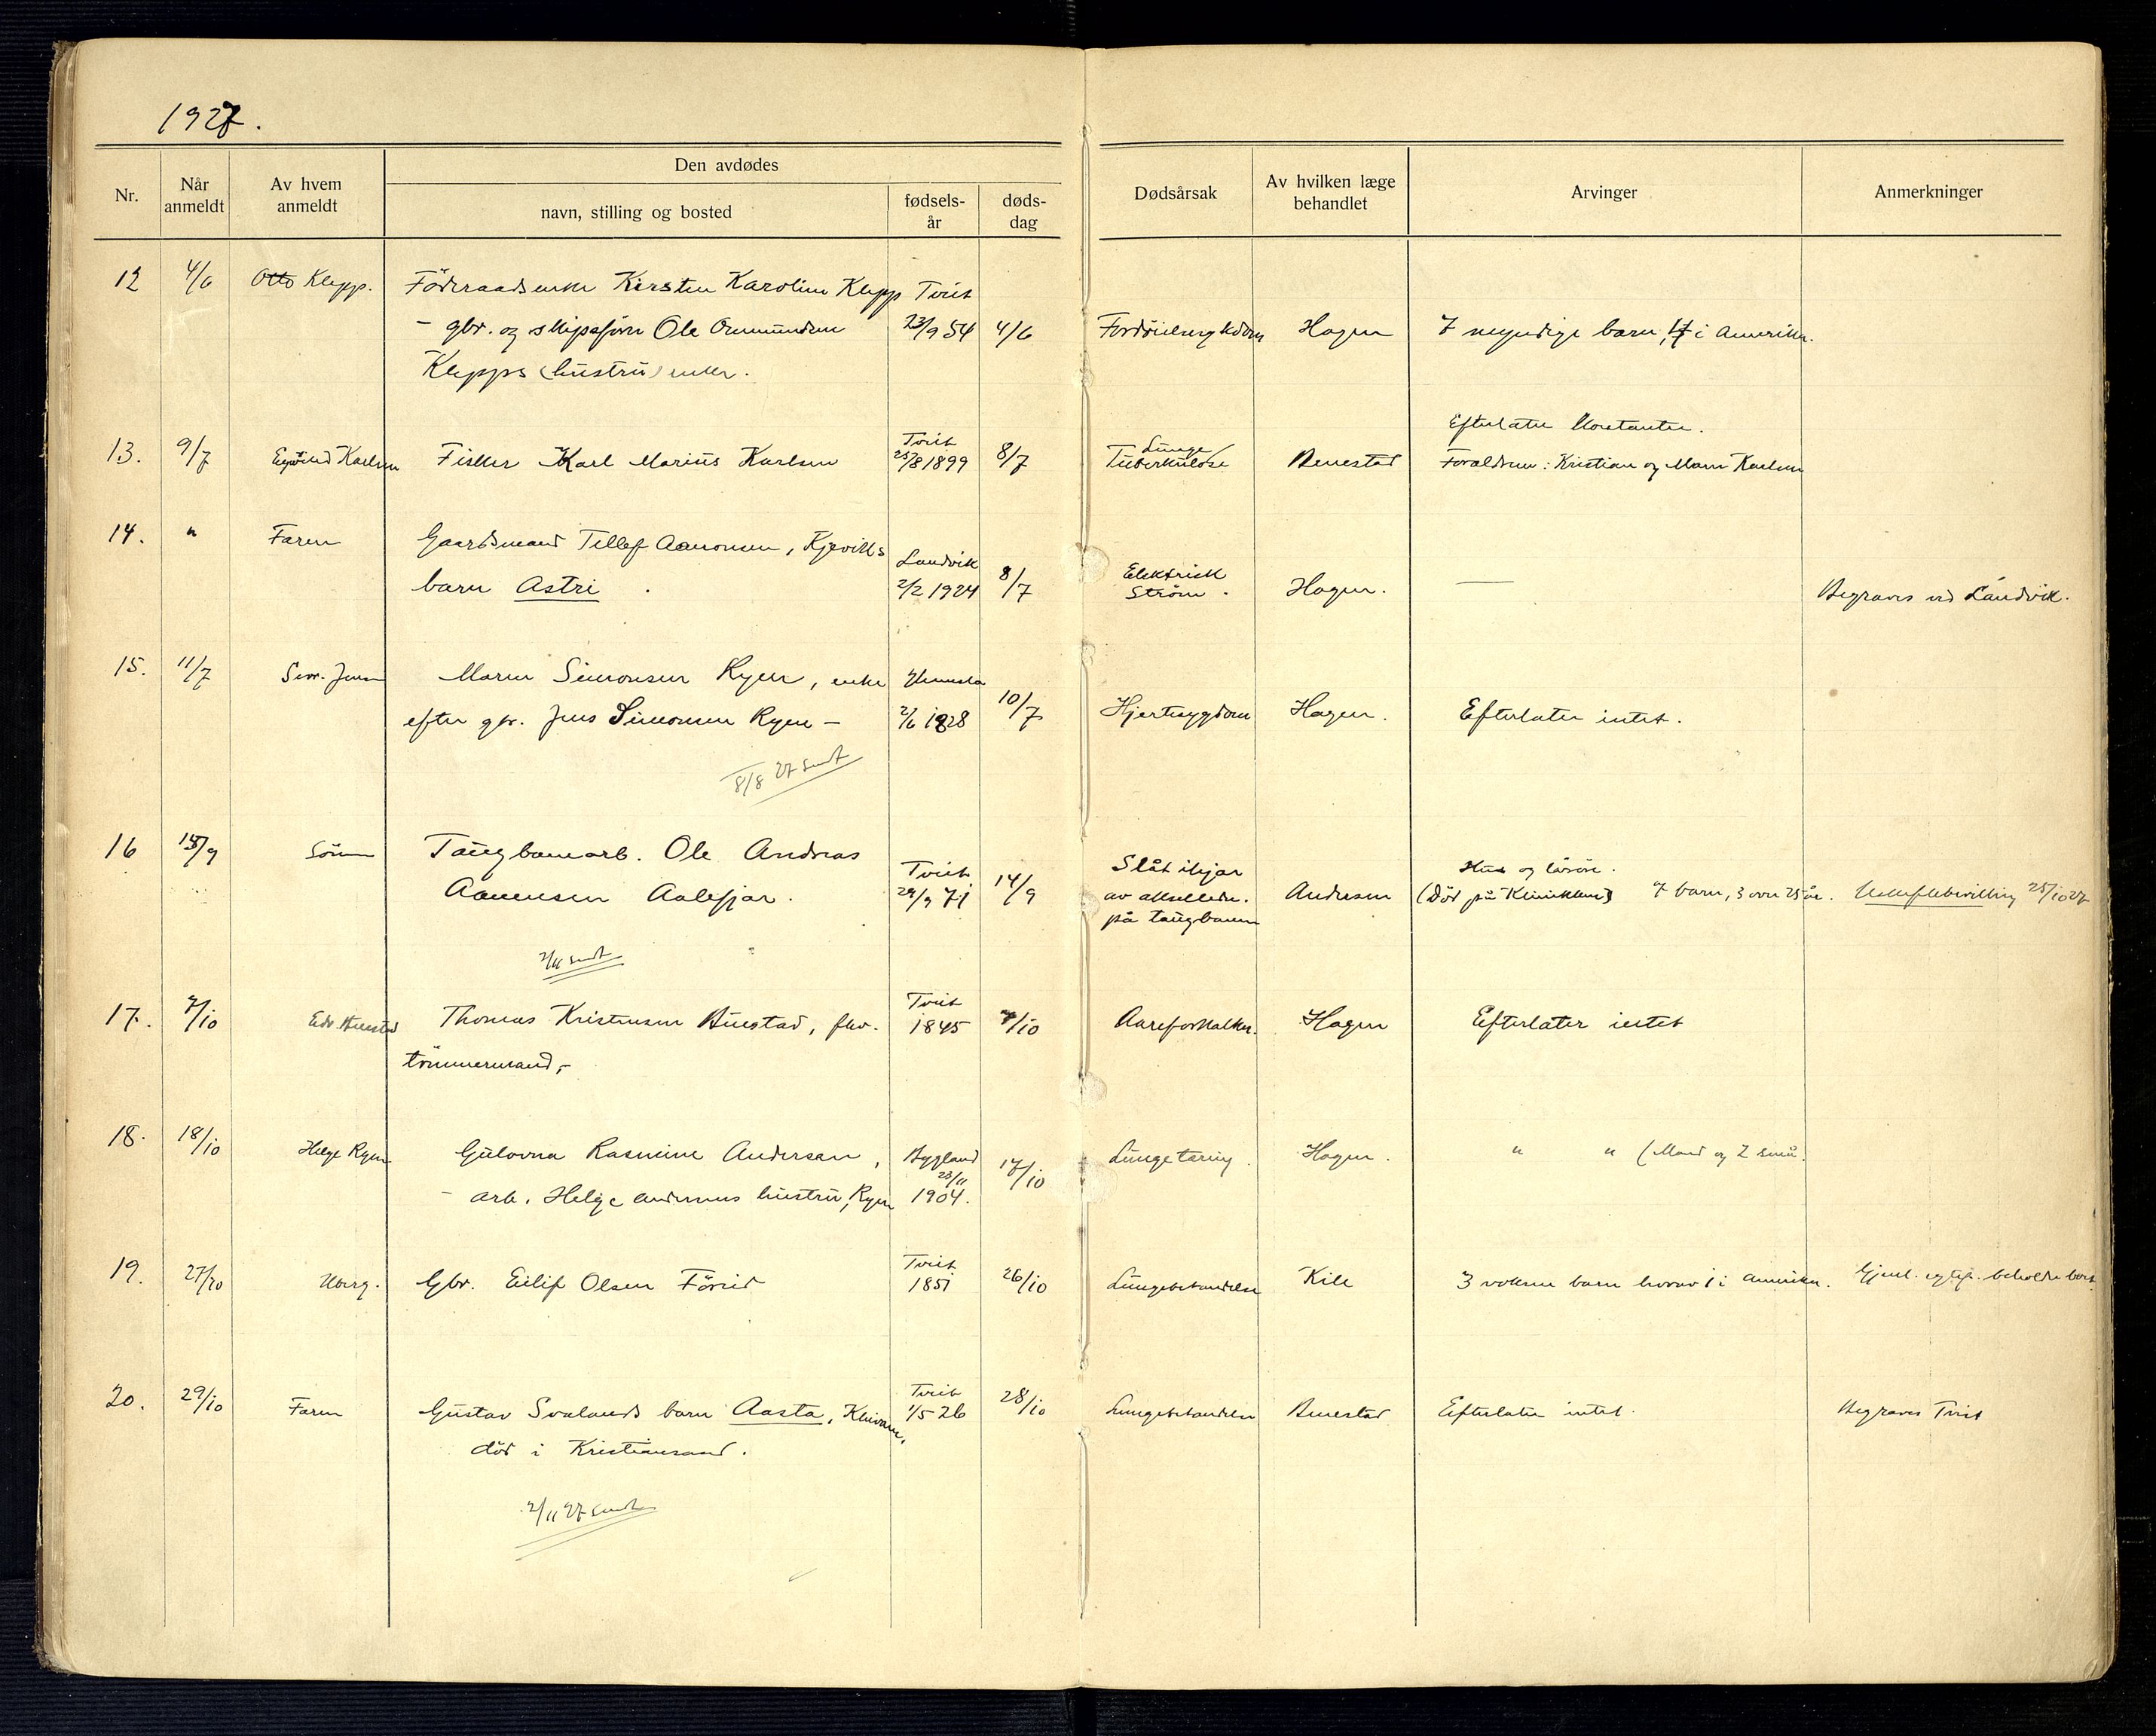 1927.
Nr.
Når anmeldt
Av hvem anmeldt
Den avdødes
navn, stilling og bosted
fødsels-år
døds-dag
Dødsårsak
Av hvilken læge behandlet
Arvinger
Anmerkninger
12 4/6 Otto Klepp. Föderaadsenke Kirsten Karoline Klepp Tveit
- gbr. og skipsfører Ole Ommundsen 23/9 54 4/6 Hagen 7 myndige barn, i Amerika.
Klepps (hüstrü) enke.
Efterlater
13. 9/7 Karlsen Fisker Karl Mariüs Karlsen Tveit 25/8 1899 8/7 Lünge Tüberkülose Benestad Foraldrene: Kristian og Karlsen
14. " Faren Gaardmand Tellef Aanonsen, Kjeviks Landvik
barn Astri 2/2 1924 8/7 Elektrisk Ström. Hagen. — Begraves ved Landvik.
15. 11/7 Jensen Maren Simonsen Ryen, enke
efter gbr. Jens Simonsen Ryen - 2/6 1828 10/7 Hjertesygdom Hagen. Efterlater intet.
8/8 27 sendt
16 15/9 Sönnen Taugbanearb. Ole Andreas Tveit Slåt ihjæl Hus og lösöre.
Aanensen Aalefjær. 29/9 71 14/9 av på taugbanen Andersen (Död på Klinikken) 7 barn, 3 over 25 år. 25/10 27
2/11 sendt
17. 7/10 Thomas Kristensen Büestad, fhv. Tveit 1845 7/10 Aareforkalkn. Hagen Efterlater intet
tömmermand,-
18. 18/10 Helge Ryen Gülovna Rasmine Andersen, Bygland 17/10 Lüngetæring. Hagen. " " (Mand og 2 små.
- arb. Helge Andersens hüstrü, Ryen 23/11 1904.
19. 27/10 Gbr. Eilif Olsen Tveit 1851 26/10 Lüngebetændelse Kile 3 voksne barn hvorav 1 i Amerika.
20. 29/10 Faren Güstav Svalands barn Aasta, Tveit 1/5 26 28/10 Lungebetændelse Benestad Efterlater intet. Begraves Tveit
död i Kristiansand.
2/11 27 sendt